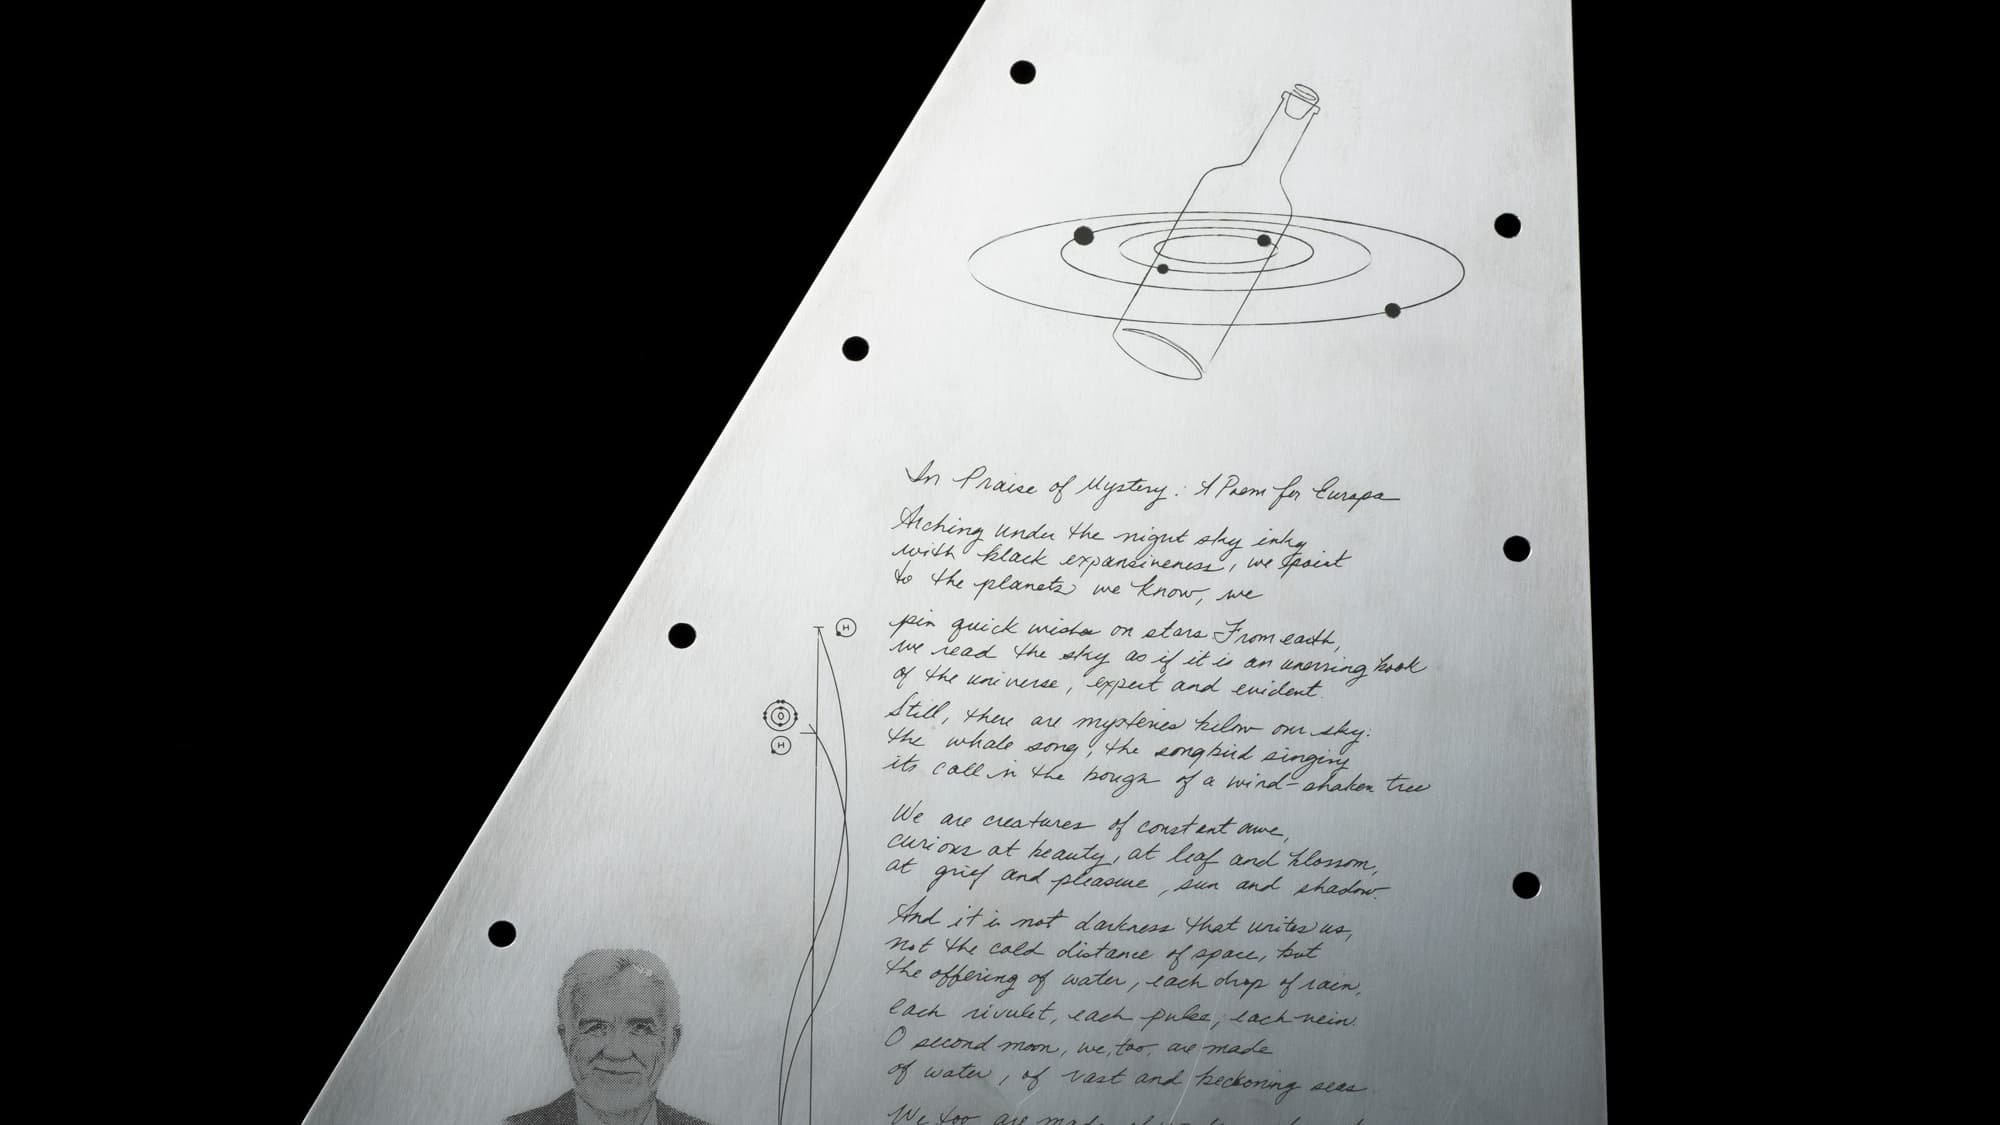 In Praise of Mystery: A Poem for Europa
Arching under the night sky inky
with black expansiveness, we point
to the planets we know, we
pin quick wishes on stars. From earth,
we read the sky as if it is an unerring book
of the universe, expert and evident.
Still, there are mysteries below our sky:
the whale song, the songbird singing
its call in the bough of a wind-shaken tree
We are creatures of constant awe,
curious at beauty, at leaf and blossom,
at grief and pleasure, sun and shadow.
And it is not darkness that unites us,
not the cold distance of space, but
the offering of water, each drop of rain,
each rivulet, each pulse, each vein.
O second moon, we, too, are made
of water, of vast and beckoning seas
We too are made
H
O
H